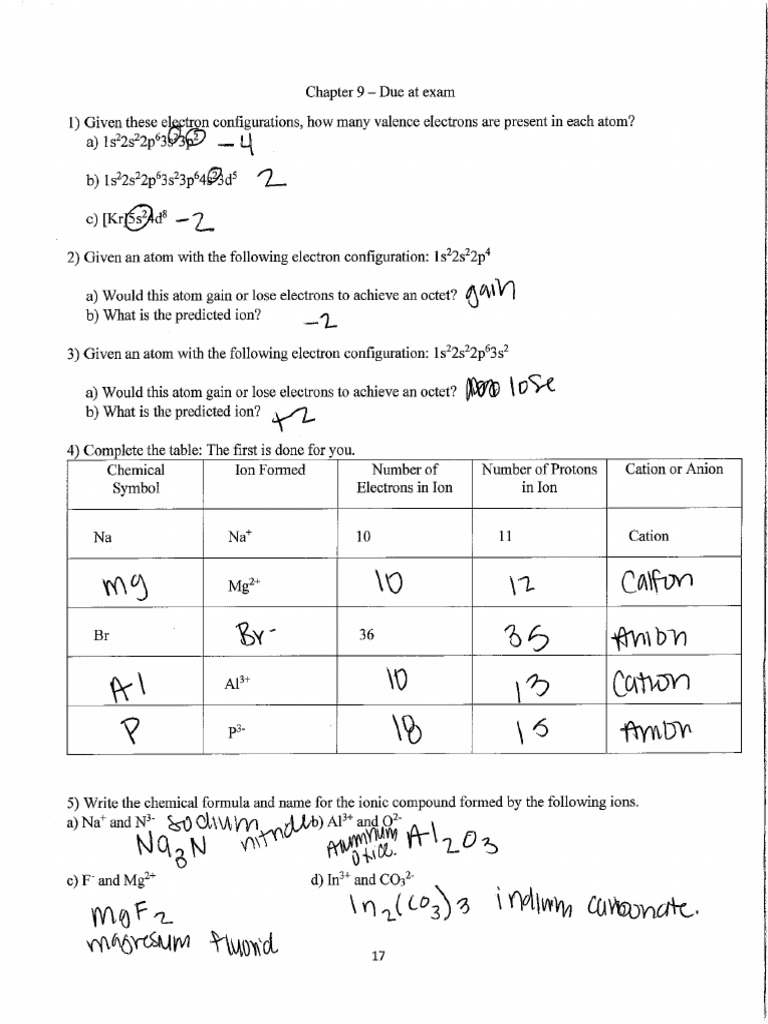 Chapter 9 – Due at exam
1) Given these electron configurations, how many valence electrons are present in each atom?
a) 1s²2s²2p⁶3s²3p² – 4
b) 1s²2s²2p⁶3s²3p⁶4s²3d⁵ 2
c) [Kr]5s²4d⁸ – 2
2) Given an atom with the following electron configuration: 1s²2s²2p⁴
a) Would this atom gain or lose electrons to achieve an octet? gain
b) What is the predicted ion? –2
3) Given an atom with the following electron configuration: 1s²2s²2p⁶3s²
a) Would this atom gain or lose electrons to achieve an octet? lose
b) What is the predicted ion? +2
4) Complete the table: The first is done for you.
Chemical Symbol Ion Formed Number of Electrons in Ion Number of Protons in Ion Cation or Anion
Na Na⁺ 10 11 Cation
Mg Mg²⁺ 10 12 Cation
Br Br⁻ 36 35 Anion
Al Al³⁺ 10 13 Cation
P P³⁻ 18 15 Anion
5) Write the chemical formula and name for the ionic compound formed by the following ions.
a) Na⁺ and N³⁻ sodium nitride Na₃N
b) Al³⁺ and O²⁻ Al₂O₃
c) F⁻ and Mg²⁺
MgF₂
magnesium fluorid
d) In³⁺ and CO₃²⁻
In₂(CO₃)3 indium carbonate.
17